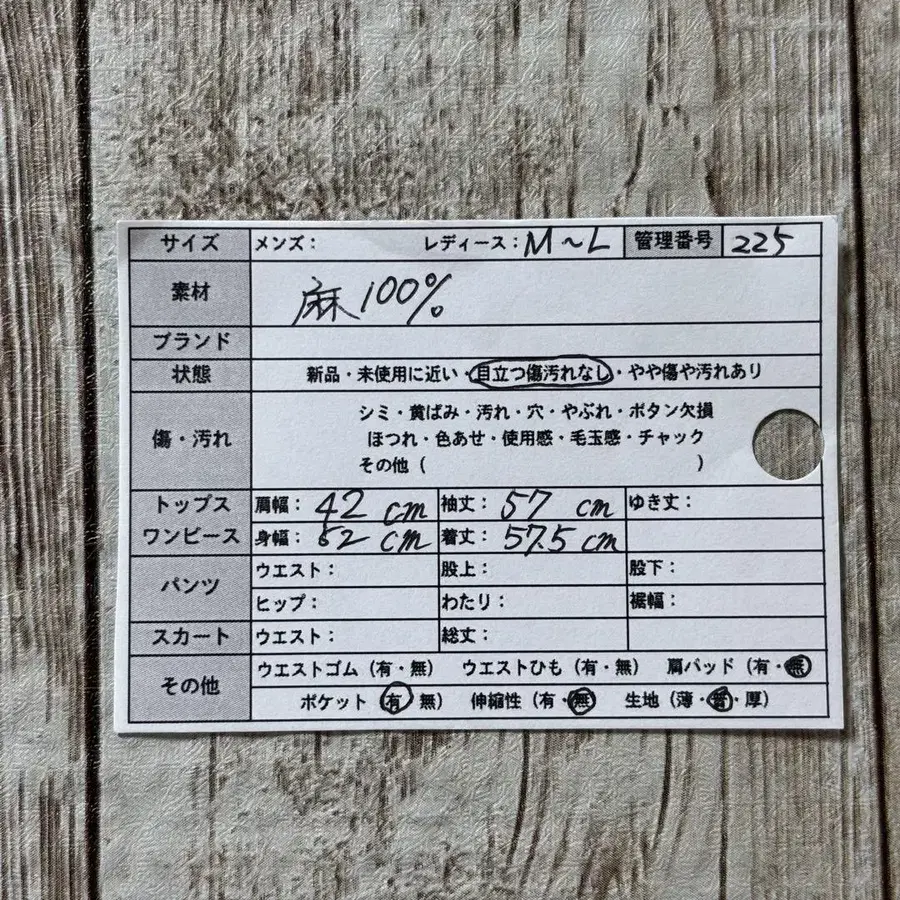 サイズ メンズ： レディース：M〜L 管理番号 225
素材 麻100%
ブランド
状態 新品・未使用に近い・目立つ傷汚れなし・やや傷や汚れあり
傷・汚れ シミ・黄ばみ・汚れ・穴・やぶれ・ボタン欠損
ほつれ・色あせ・使用感・毛玉感・チャック
その他（ ）
トップス 肩幅：42 cm 袖丈：57 cm ゆき丈：
ワンピース 身幅：52 cm 着丈：57.5 cm
パンツ ウエスト： 股上： 股下：
ヒップ： わたり： 裾幅：
スカート ウエスト： 総丈：
その他 ウエストゴム（有・無） ウエストひも（有・無） 肩パッド（有・無）
ポケット（有 無） 伸縮性（有・無） 生地（薄・普・厚）